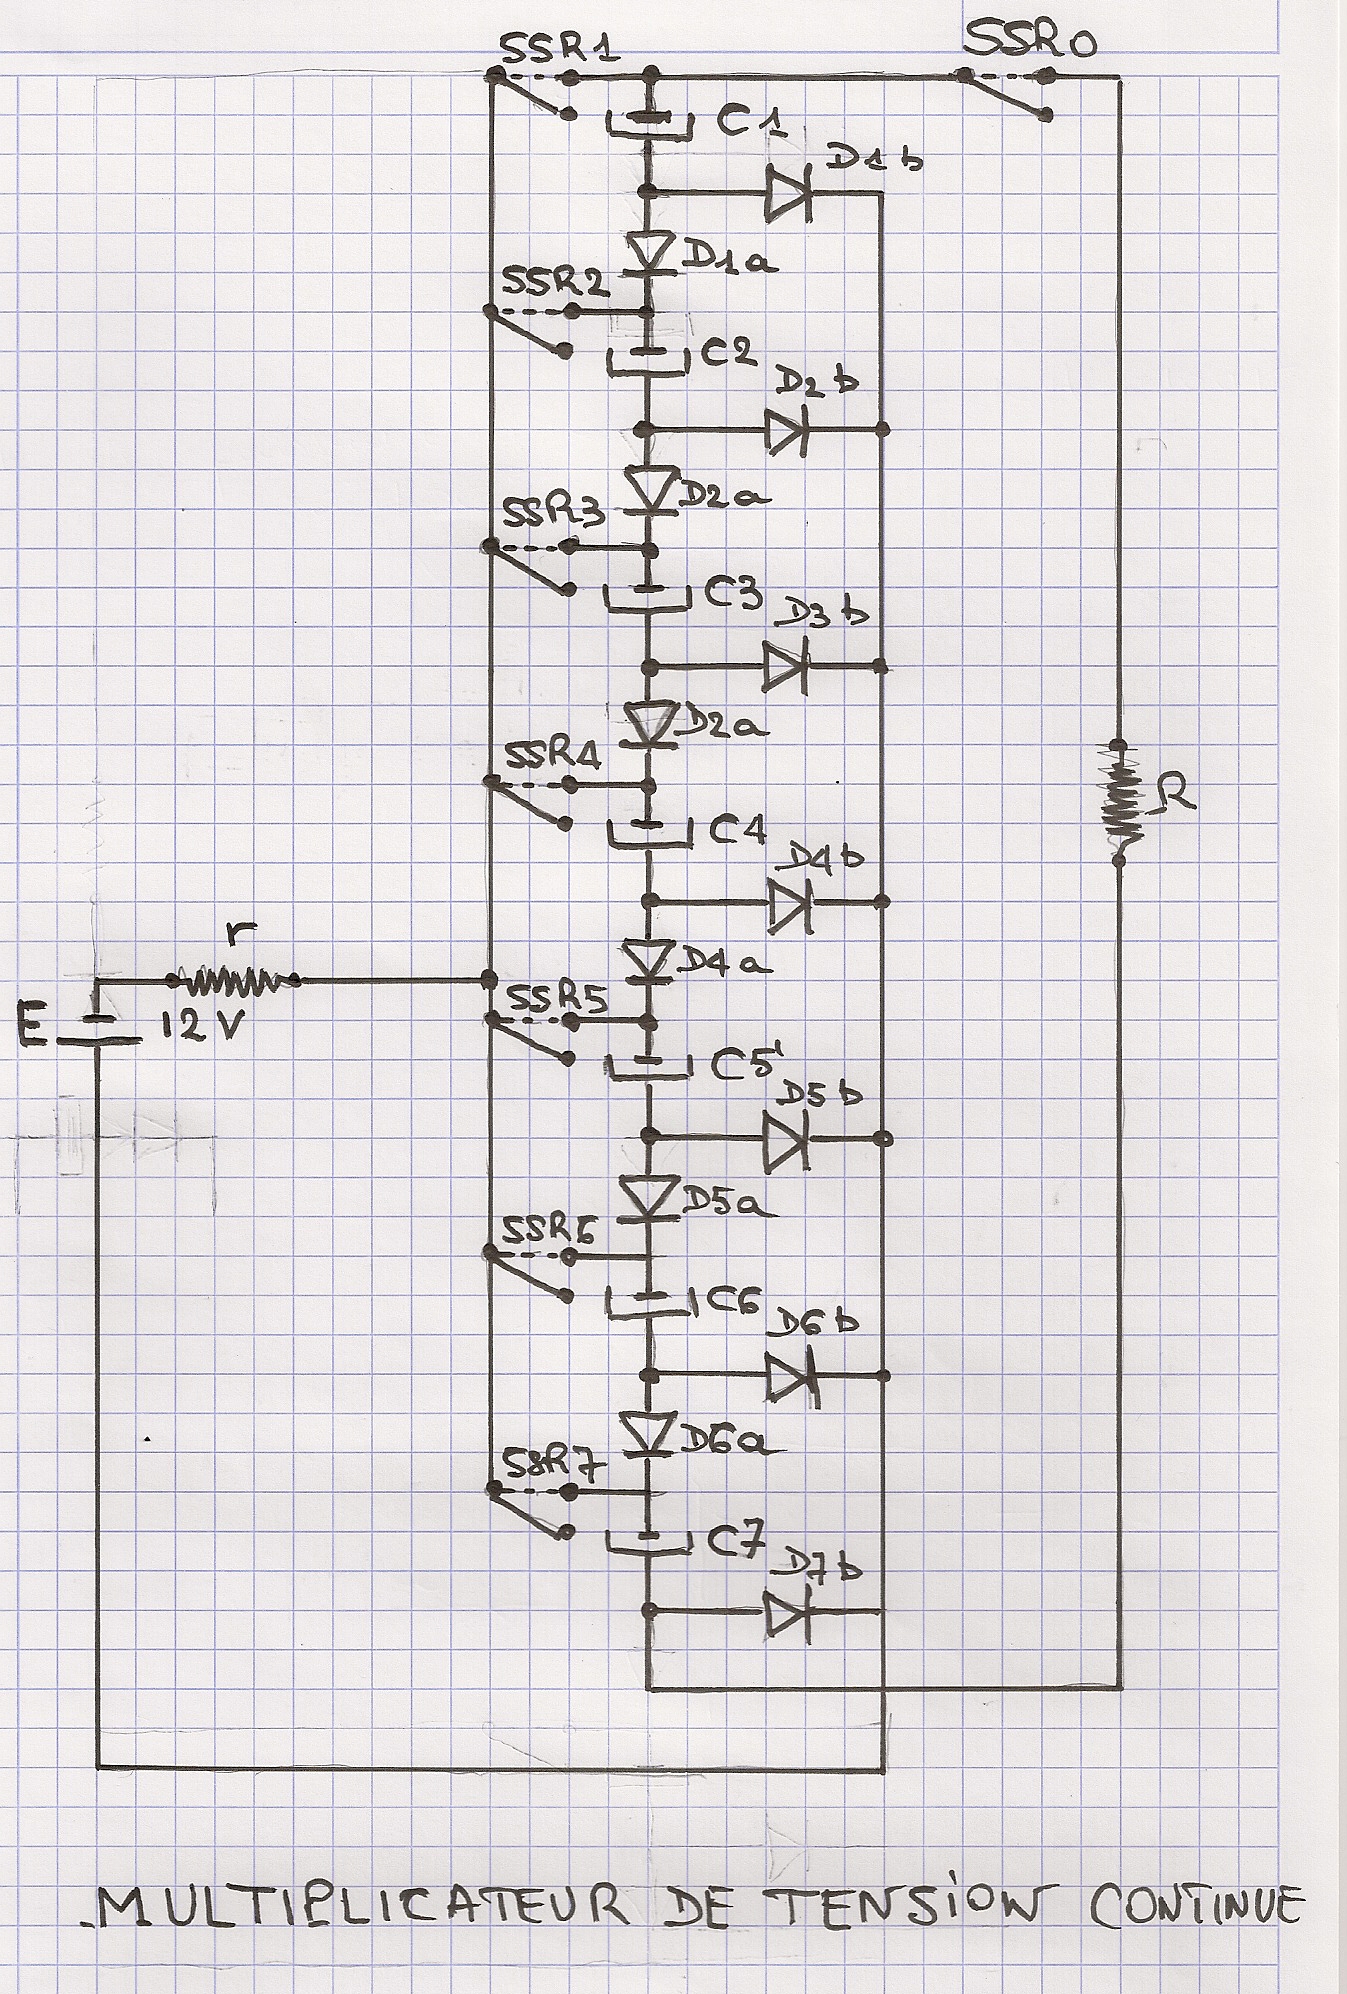 SSR1
SSR0
C1
D1b
D1a
SSR2
C2
D2b
D2a
SSR3
C3
D3b
D2a
SSR4
R
C4
D4b
r
D4a
SSR5
E
12V
C5
D5b
D5a
SSR6
C6
D6b
D6a
SSR7
C7
D7b
MULTIPLICATEUR DE TENSION CONTINUE